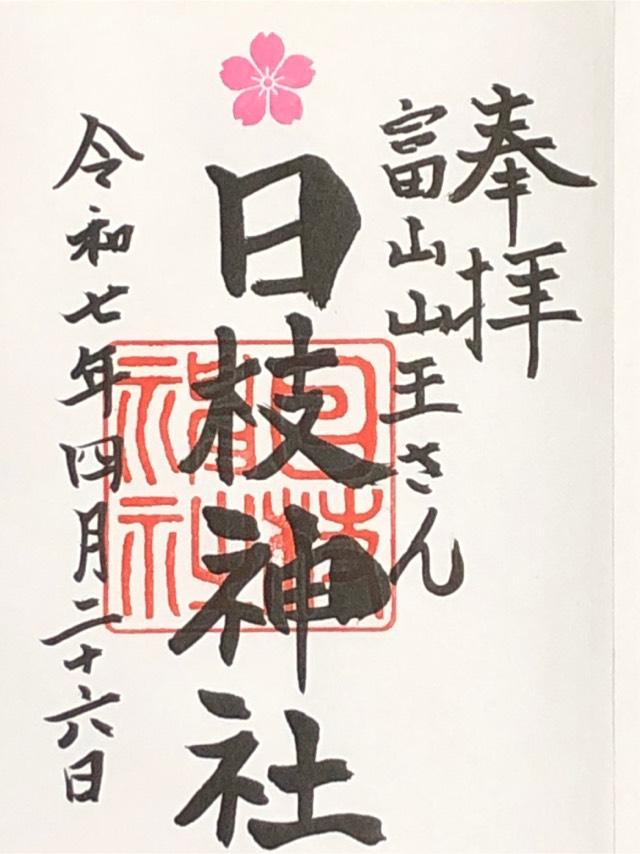 奉拝
富山山王さん
日枝神社
令和七年四月二十六日